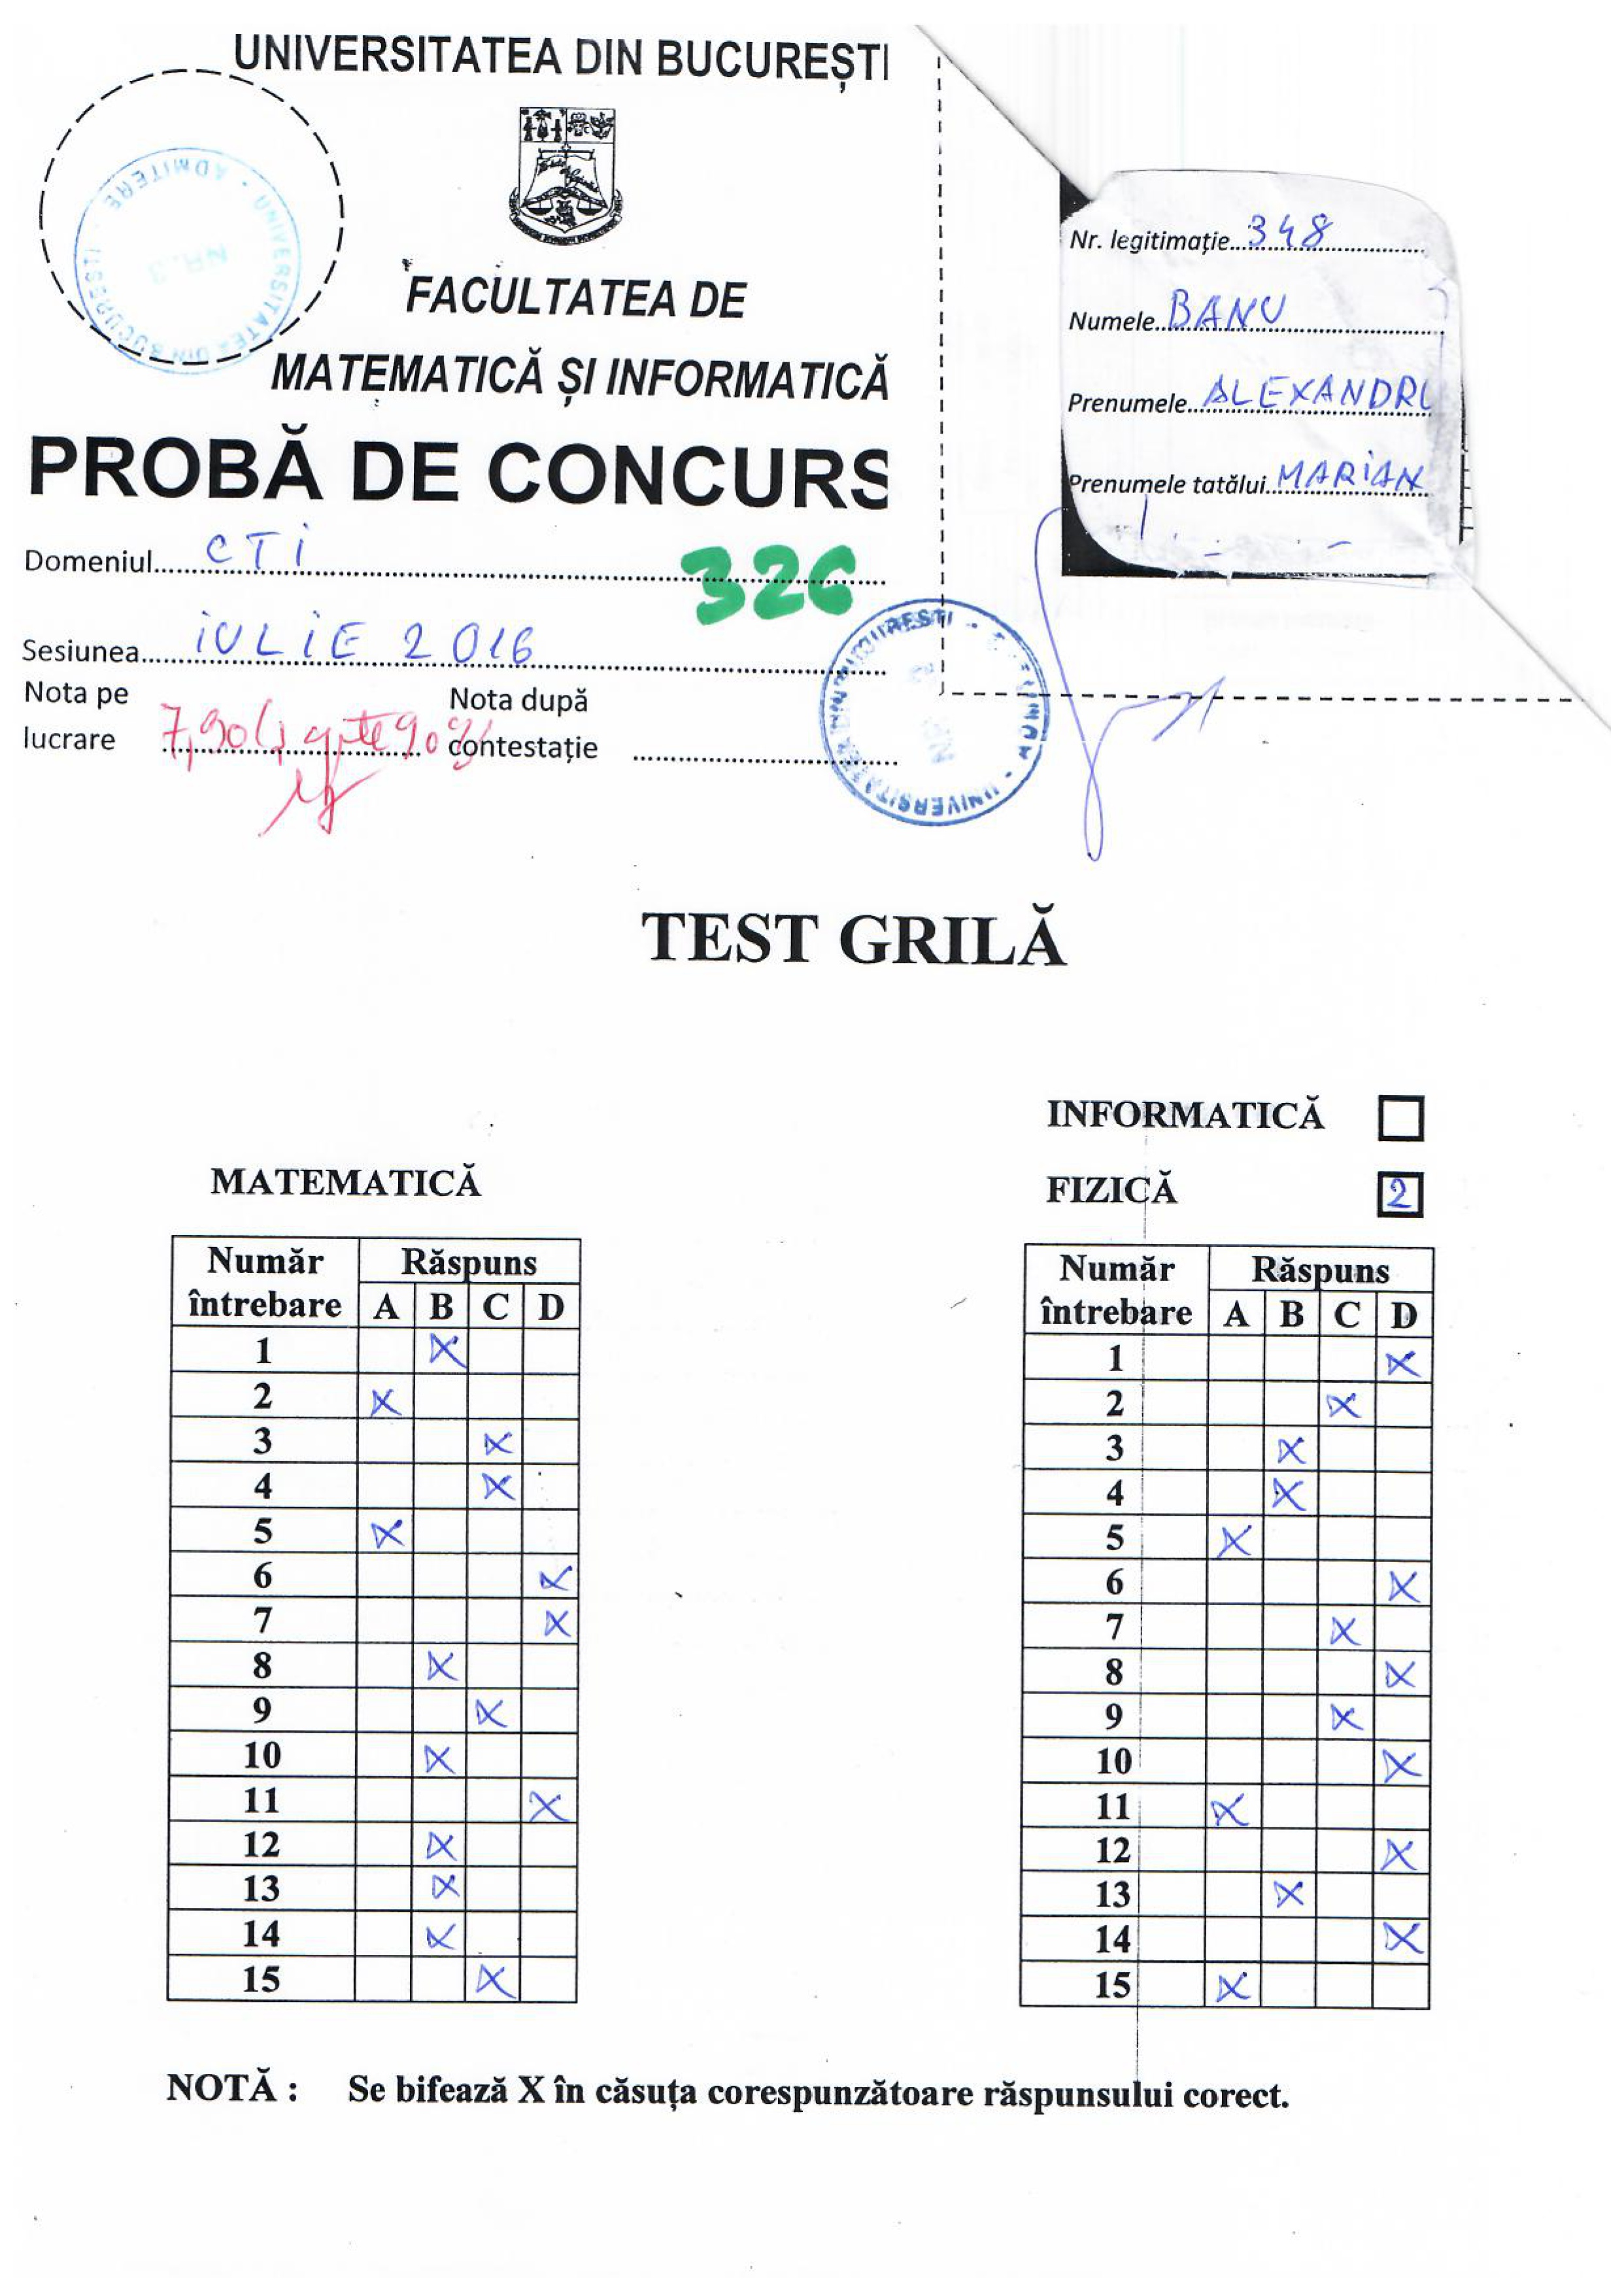 UNIVERSITATEA DIN BUCUREȘTI
UNIVERSITATEA DIN BUCUREȘTI - ADMITERE
NR. 3
FACULTATEA DE
MATEMATICĂ ȘI INFORMATICĂ
PROBĂ DE CONCURS
Domeniul CTI
326
Sesiunea IULIE 2016
Nota pe lucrare 7,90 (șapte 90%)
Nota după contestație
Nr. legitimație 348
Numele BANU
Prenumele ALEXANDRU
Prenumele tatălui MARIAN
TEST GRILĂ
INFORMATICĂ
MATEMATICĂ
FIZICĂ 2
Număr întrebare Răspuns
A B C D
1 X
2 X
3 X
4 X
5 X
6 X
7 X
8 X
9 X
10 X
11 X
12 X
13 X
14 X
15 X
Număr întrebare Răspuns
A B C D
1 X
2 X
3 X
4 X
5 X
6 X
7 X
8 X
9 X
10 X
11 X
12 X
13 X
14 X
15 X
NOTĂ : Se bifează X în căsuța corespunzătoare răspunsului corect.